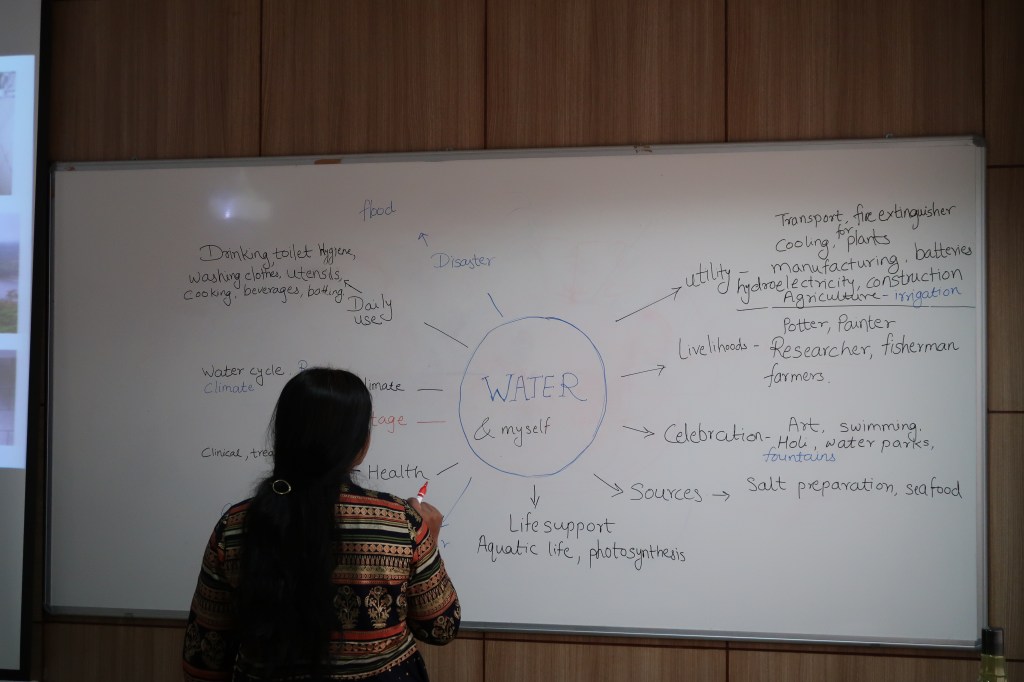 flood
Disaster
Drinking, toilet Hygiene,
washing clothes, utensils,
cooking, beverages, bathing
Daily
use
Water cycle
Climate
Clinical,
Health
WATER
& myself
Life support
Aquatic life, photosynthesis
Transport, fire extinguisher
Cooling, for plants
utility – manufacturing, batteries
hydroelectricity, construction
Agriculture – irrigation
Potter, Painter
Livelihoods – Researcher, fisherman
farmers.
Art, swimming,
Celebration – Holi, water parks,
fountains
Sources → Salt preparation, seafood